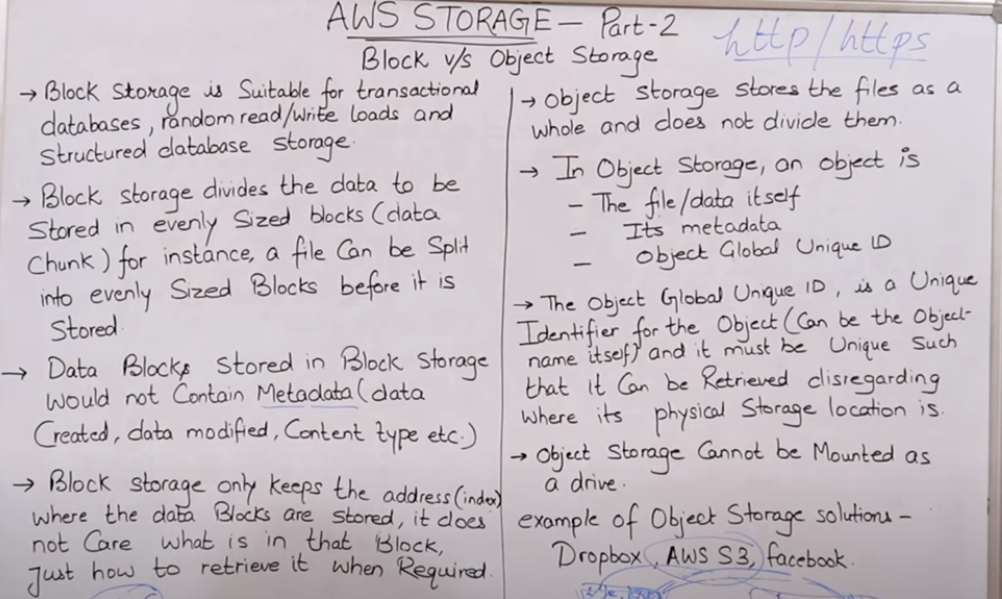 AWS STORAGE — Part-2
http/https
Block v/s Object Storage
→ Block Storage is Suitable for transactional
databases, random read/write loads and
structured database storage.
→ Block storage divides the data to be
Stored in evenly Sized blocks (data
Chunk) for instance, a file Can be Split
into evenly Sized Blocks before it is
Stored.
→ Data Blocks Stored in Block Storage
would not Contain Metadata (data
Created, data modified, Content type etc.)
→ Block storage only keeps the address (index)
where the data Blocks are stored, it does
not Care what is in that Block,
Just how to retrieve it when Required.
→ Object Storage Stores the files as a
whole and does not divide them.
→ In Object Storage, an object is
– The file/data itself
– Its metadata
– Object Global Unique ID
→ The Object Global Unique ID, is a Unique
Identifier for the Object (Can be the Object-
name itself) and it must be Unique Such
that it Can be Retrieved disregarding
where its physical Storage location is.
→ Object Storage Cannot be Mounted as
a drive.
example of Object Storage solutions –
Dropbox, AWS S3, facebook.